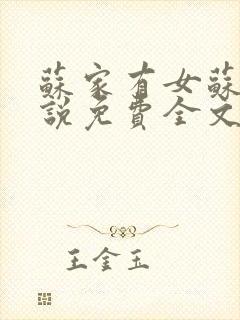 蘇家有女蘇
說免費全文
王金玉